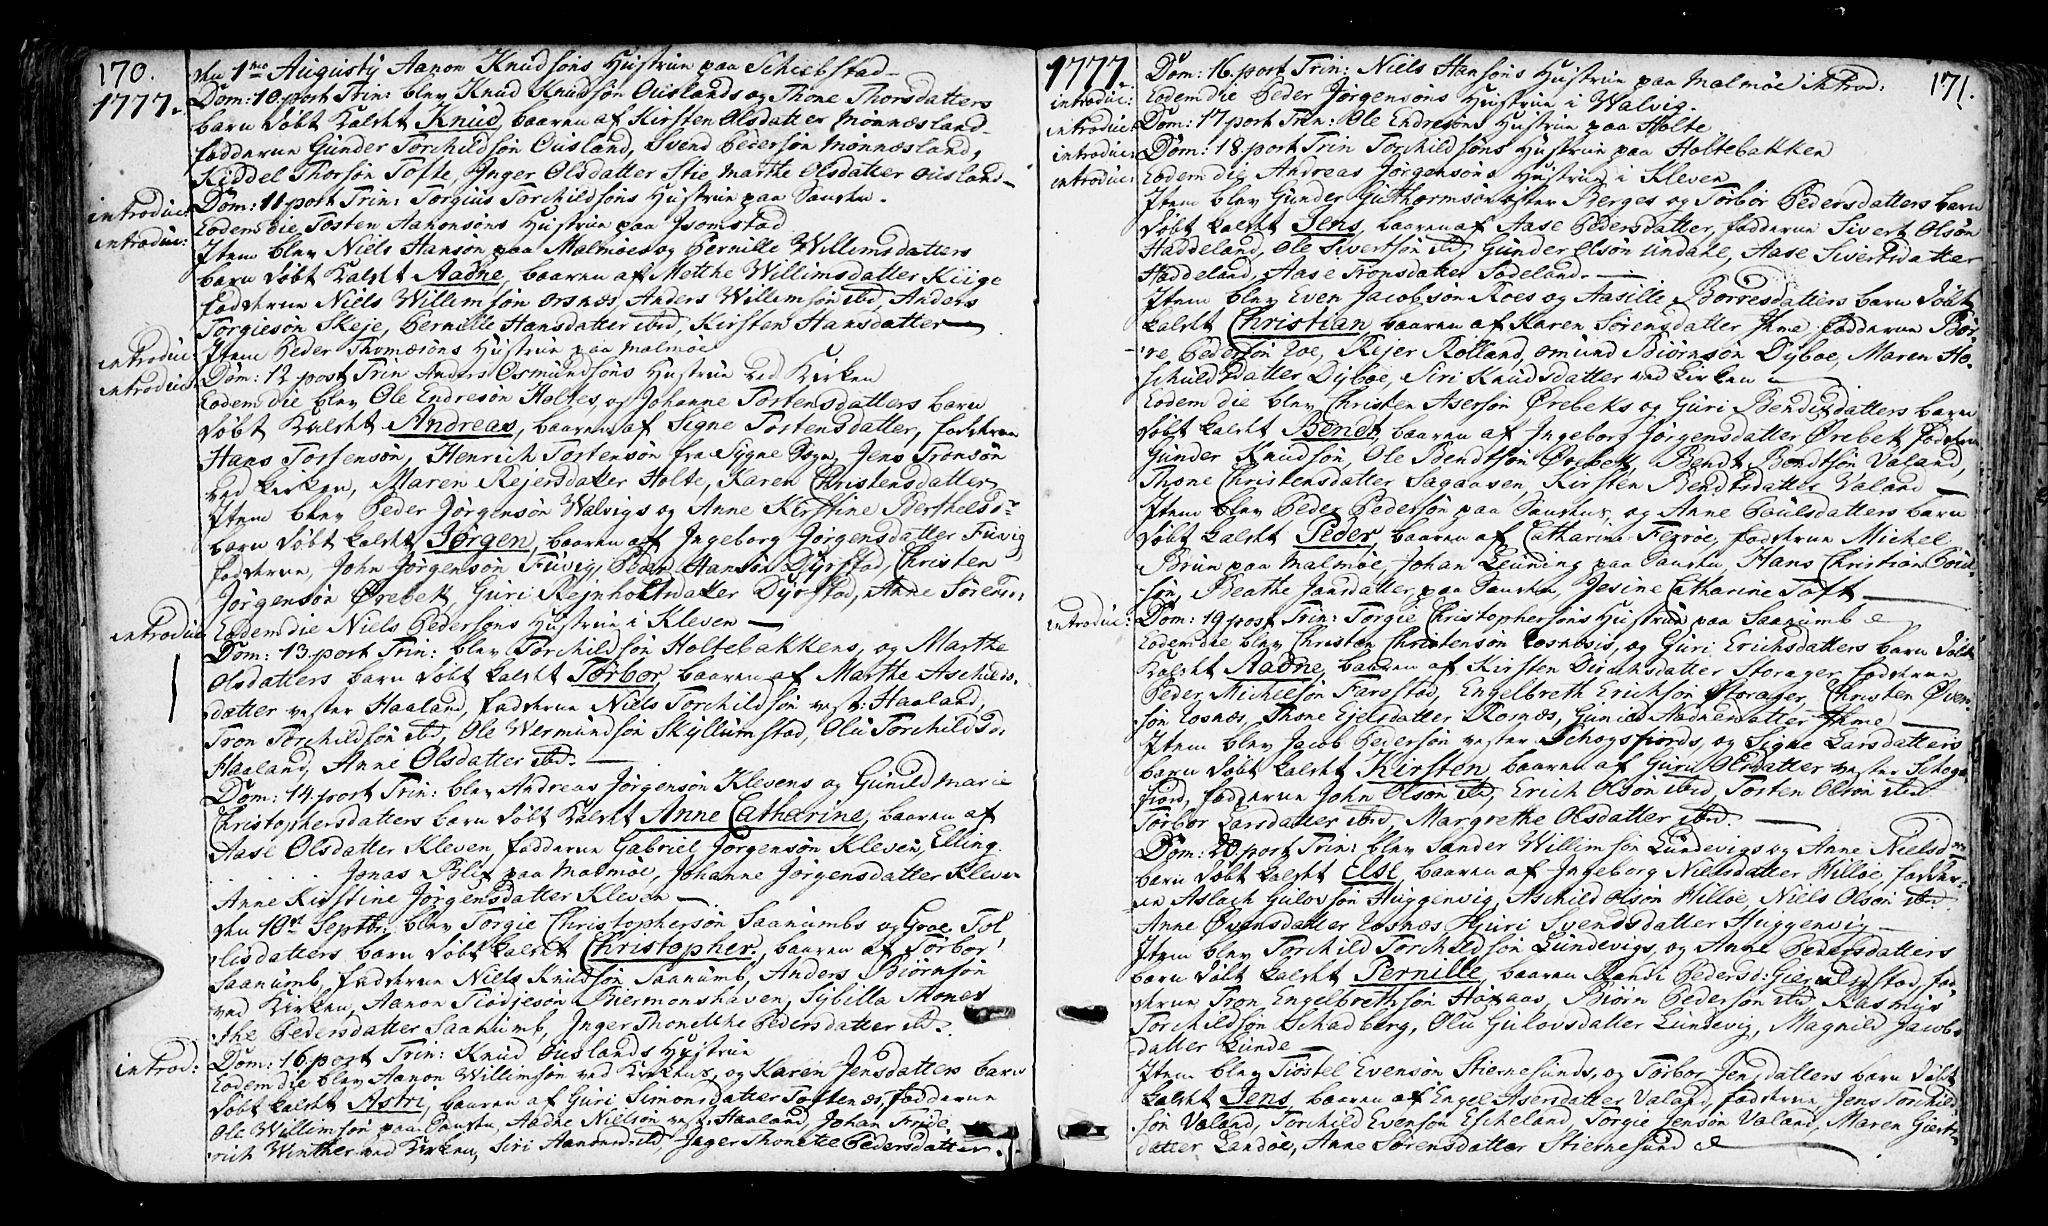 170.
1777.
den 1mo Augustij Aanon Knudsøns Hustrue paa Schiebstad
Dom: 10. post Trin: blev Knud Knudsøn Ouslands og Thone Thorsdatters
barn døbt kaldet Knud, baaren af Kirsten Olsdatter Mønnesland
fadderne Gunder Torchildsøn Ousland, Svend Pedersøn Mønnesland,
Kiddel Thorsøn Tofte, Inger Olsdatter Stie Marthe Olsdatter Ousland
introduc: Dom: 11 post Trin: Torgius Torchildsøns Hustrue paa
introduc: Eodem die Tosten Aanonsøns Hustrue paa Isomstad
Item blev Niels Hanson paa Malmøe og Pernille Willimsdatters
barn døbt kaldet Aadne, baaren af Metthe Willimsdatter Kiige
fadderne Niels Willimsøn Osnes Anders Willimsøn ibid, Anders
Torgiesøn Skeje, Pernille Hansdatter ibid, Kirsten Hansdatter
introduc: Item Peder Thomæsøns Hustrue paa Malmøe
introduc: Dom: 12 post Trin Anders Osmundsøns Hustrue ved Kirken
Eodem die blev Ole Endresøn Holtes, og Johanne Tostensdatters barn
døbt kaldet Andreas, baaren af Signe Tostensdatter, fadderne
Hans Tostensøn, Henrich Tostensøn fra Sygne Sogn, Jens Tronsøn
ved kirken, Maren Rejersdatter Holte, Karen Christensdatter
Item blev Peder Jørgensøn Walvigs og Anne Kirstine Berthelsd:
barn døbt kaldet Jørgen, baaren af Ingeborg Jørgensdatter Fuvig
fadderne, John Jørgensøn Fuvig, Peder Hansøn Dyrstad, Christen
Jørgensøn Ørebek, Guri Rejnholtsdatter Dyrstad, Anne Sørens:
introduc: Eodem die Niels Pedersøns Hustrue i Kleven
Dom: 13. post Trin: blev Torchildsøn Holtebakkens, og Marthe
Olsdatters barn døbt kaldet Torbor, baaren af Marthe Aschilds
datter vester Haaland, fadderne Niels Torchildsøn vest: Haaland,
Tron Torchildsøn ibid, Ole Wermundsøn Skyllumstad, Olu Torchildsd.
Haaland, Anne Olsdatter ibid.
Dom: 14. post Trin: blev Andreas Jørgensøn Klevens og Gunild Marie
Christophersdatters barn døbt kaldet Anne Catharine, baaren af
Aase Olsdatter Kleven, fadderne Gabriel Jørgensøn Kleven, Elling
Jonas Blix paa Malmøe, Johanne Jørgensdatter Kleven
Anne Kirstine Jørgensdatter Kleven
den 10de Septbr: blev Torgie Christophersøn Saanumbs og Groe Tol
lisdatters barn døbt kaldet Christopher, baaren af Torbor
Saanumb, fadderne Niels Knudsøn Saanumb, Anders Biørnsøn
ved Kirken, Aanon Tiødjesøn Biermonshaven, Sybilla Thonet
the Pedersdatter Saanumb, Inger Thonethe Pedersdatter ibd.
introd: Dom: 16 post Trin: Knud Ouslands Hustrue
Eodem die blev Aanon Willimsøn ved Kirkens, og Karen Jensdatters barn
døbt kaldet Astri, baaren af Guri Simonsdatter Tostenæs, fadderne
Ole Willimsøn paa, Aadne Nielsøn vest: Haaland, Johan Fride
rich Winther ved Kirken, Siri Aanonsd ibd, Inger Thonethe Pedersdatter.
1777.
171.
introduc: Dom: 16. post Trin: Niels Hansøns Hustrue paa Malmøe introd:
introduc: Eodem die Peder Jørgensøns Hustrue i Walvig.
introduc: Dom: 17 post Trin: Ole Endresøns Hustrue paa Holte
introduc: Dom: 18. post Trin Torchildsøns Hustrue paa Holtebakken
Eodem die Andreas Jørgensøns Hustrue i Kleven
Item blev Gunder Guthormsøn øster Berges og Torbor Pedersdatters barn
døbt kaldet Jens, baaren af Aase Pedersdatter, fadderne Sivert Olsøn
Haddeland, Ole Sivertsøn ibd, Gunder Olsøn Undahl, Aase Sivertsdatter
Haddeland, Aase Tronsdatter Sødeland.
Item blev Even Jacobsøn Roes og Aasille Børresdatters barn døbt
kaldet Christian, baaren af Karen Sørensdatter Ihme, fadderne Bør
re Pedersøn Eoe, Rejer Rolland, Omund Biørnsøn Dyboe, Maren Ho
schuldsdatter Dyboe, Siri Knudsdatter ved Kirken
Eodem die blev Christen Asersøn Ørebeks og Guri Bendixdatters barn
døbt kaldet Bendt, baaren af Ingeborg Jørgensdatter Ørebek, fadderne
Gunder Knudsøn, Ole Bendtsøn Ørebek, Bendt Bendtsøn Valand,
Thone Christensdatter Sagaasen, Kirsten Bendtsdatter Valand
Item blev Peder Pedersøn paa, og Anne Povlsdatters barn
døbt kaldet Peder, baaren af Catharina Ferøe, fadderne Michel
Brun paa Malmøe, Johan Leuning paa, Hans Christian Poul
søn, Beathe Jansdatter paa, Jesine Catharine Toft
introduc: Dom: 19 post Trin: Torgie Christophersøns Hustrue paa Saanumb
Eodem die blev Christen Christensøn Rosnesis, og Guri Erichsdatters barn døbt
kaldet Aadne, baaren af Kirsten Dirichsdatter Storager, fadderne
Peder Michelsøn Farestad, Engelbreth Erichsøn Storager, Christen Øven
søn Rosnes, Thone Ejelsdatter Rosnæs, Gunild Aadnedatter Ihme
Item blev Jacob Pedersøn vester Schogsfiords, og Signe Larsdatters
barn døbt kaldet Kirsten, baaren af Guru Olsdatter vester Schogs
fiord, fadderne John Olsøn ibd, Erich Olsøn ibid, Tosten Olsøn ibid
Torbor Larsdatter ibid, Margrethe Olsdatter ibid.
Dom: 20 post Trin: blev Sander Willimsøn Lundevigs og Anne Nielsd.
barn døbt kaldet Else, baaren af Ingeborg Nielsdatter Hilloe, fadder
ne Aslach Gulovsøn Huggenvig, Aschild Olsøn Hilloe, Niels Olsøn ibd.
Anne Øvensdatter Rosnæs Hjuri Svendsdatter Huggenvig
Item blev Torchild Torchildsøn Lundevigs, og Anne Pedersdatters
barn døbt kaldet Pernille, baaren Randi Pedersd: Giermundstad, fad
derne Tron Engelbrethsøn Høyaas, Biørn Pedersøn ibd, Rasmus
Torchildsøn Schadberg, Olu Gulovsdatter Lundevig, Magnild Jacobs
datter Lunde
Item blev Tiøstel Evensøn Stiernesunds, og Torbor Jensdatters barn døbt
kaldet Jens, baaren af Engel Asersdatter Valand, fadderne Jens Torchild
søn Valand, Torchild Evensøn Escheland, Torgie Jensøn Valand, Maren Giert
datter Landøe, Anne Sørensdatter Stiernesund